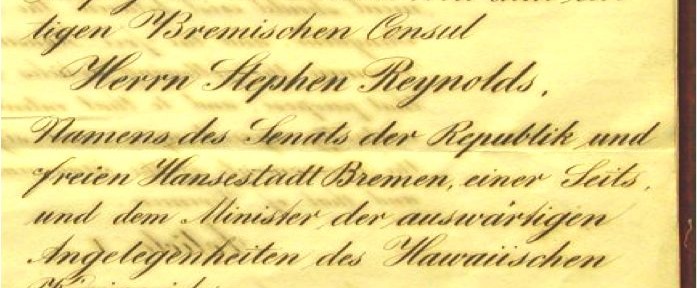 tigen Bremischen Consul
Herrn Stephen Reynolds,
Namens des Senats der Republik und
freien Hansestadt Bremen, einer Seits,
und dem Minister der auswärtigen
Angelegenheiten des Hawaiischen